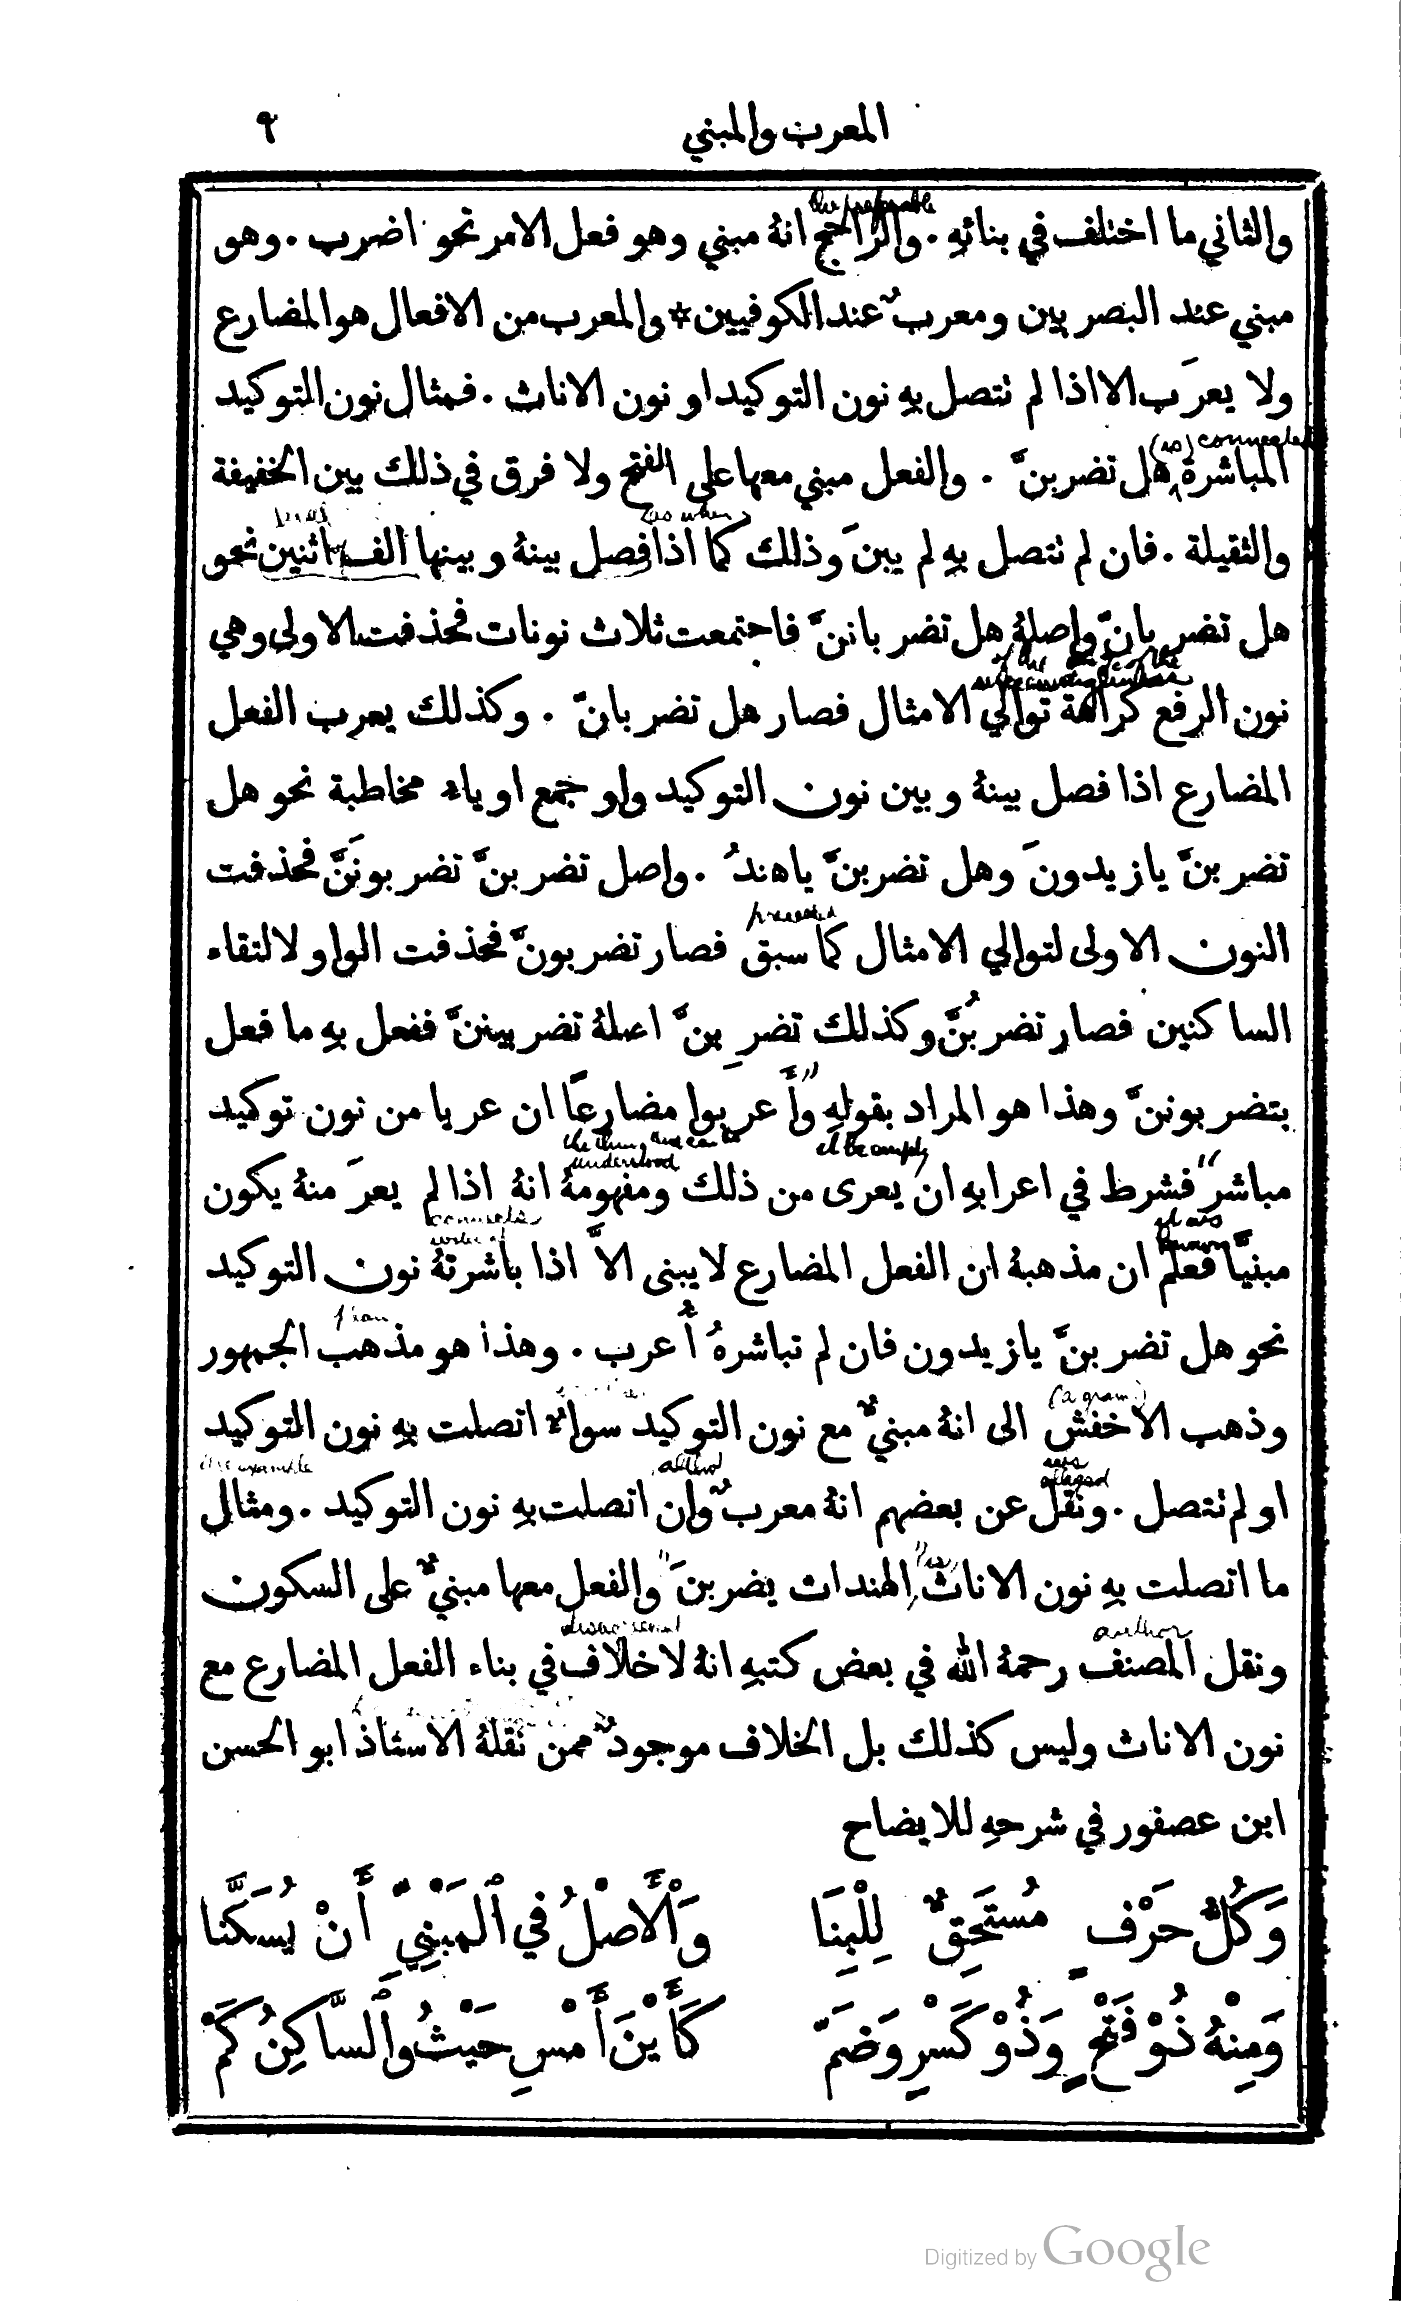 المعرب والمبني ٩
the preferable
والثاني ما اختلف في بنائهِ . والراجح انهُ مبني وهو فعل الامر نحو اضرب . وهو
مبني عند البصريين ومعربٌ عند الكوفيين * والمعرب من الافعال هو المضارع
ولا يعرَب الا اذا لم تتصل بهِ نون التوكيد او نون الاناث . فمثال نون التوكيد
(as) connected
المباشرة هل تضربنَّ . والفعل مبني معها على الفتح ولا فرق في ذلك بين الخفيفة
as when
والثقيلة . فان لم تتصل بهِ لم يبنَ وذلك كما اذا فصل بينهُ وبينها الف اثنين نحو
هل تضربانّ واصلهُ هل تضرباننَّ فاجتمعت ثلاث نونات فحذفت الاولى وهي
of the of the
نون الرفع كراهة توالي الامثال فصار هل تضربانّ . وكذلك يعرب الفعل
المضارع اذا فصل بينهُ وبين نون التوكيد واو جمع او ياء مخاطبة نحو هل
تضربنَّ يا زيدونَ وهل تضربنَّ يا هندُ . واصل تضربنَّ تضربونَنَّ فحذفت
preceded
النون الاولى لتوالي الامثال كما سبق فصار تضربونَّ فحذفت الواو لالتقاء
الساكنين فصار تضربُنَّ وكذلك تضربِنَّ اصلهُ تضربيننَّ ففعل بهِ ما فعل
بتضربوننَّ وهذا هو المراد بقولهِ "وأَعربوا مضارعًا ان عريا من نون توكيد
the thing that can be understood
مباشر" فشرط في اعرابهِ ان يعرى من ذلك ومفهومهُ انهُ اذا لم يعرَ منهُ يكون
مبنيًّا فعلم ان مذهبهُ ان الفعل المضارع لا يبنى الاَّ اذا باشرتهُ نون التوكيد
نحو هل تضربنَّ يا زيدون فان لم تباشرهُ أُعرب . وهذا هو مذهب الجمهور
(a gram.)
وذهب الاخفش الى انهُ مبنيٌّ مع نون التوكيد سواءٌ اتصلت بهِ نون التوكيد
altho
او لم تتصل . ونقل عن بعضهم انهُ معربٌ وان اتصلت بهِ نون التوكيد . ومثال
ما اتصلت بهِ نون الاناث "الهندات يضربنَ" والفعل معها مبنيٌّ على السكون
author
ونقل المصنف رحمهُ الله في بعض كتبهِ انهُ لا خلاف في بناء الفعل المضارع مع
نون الاناث وليس كذلك بل الخلاف موجودٌ ممن نقلهُ الاستاذ ابو الحسن
ابن عصفور في شرحهِ للايضاح
وَكُلُّ حَرْفٍ مُسْتَحِقٌّ لِلْبِنَا وَٱلْأَصْلُ فِي ٱلْمَبْنِيِّ أَنْ يُسَكَّنَا
وَمِنْهُ ذُوْ فَتْحٍ وَذُوْ كَسْرٍ وَضَمّ كَأَيْنَ أَمْسِ حَيْثُ وَٱلسَّاكِنُ كَمْ
Digitized by Google